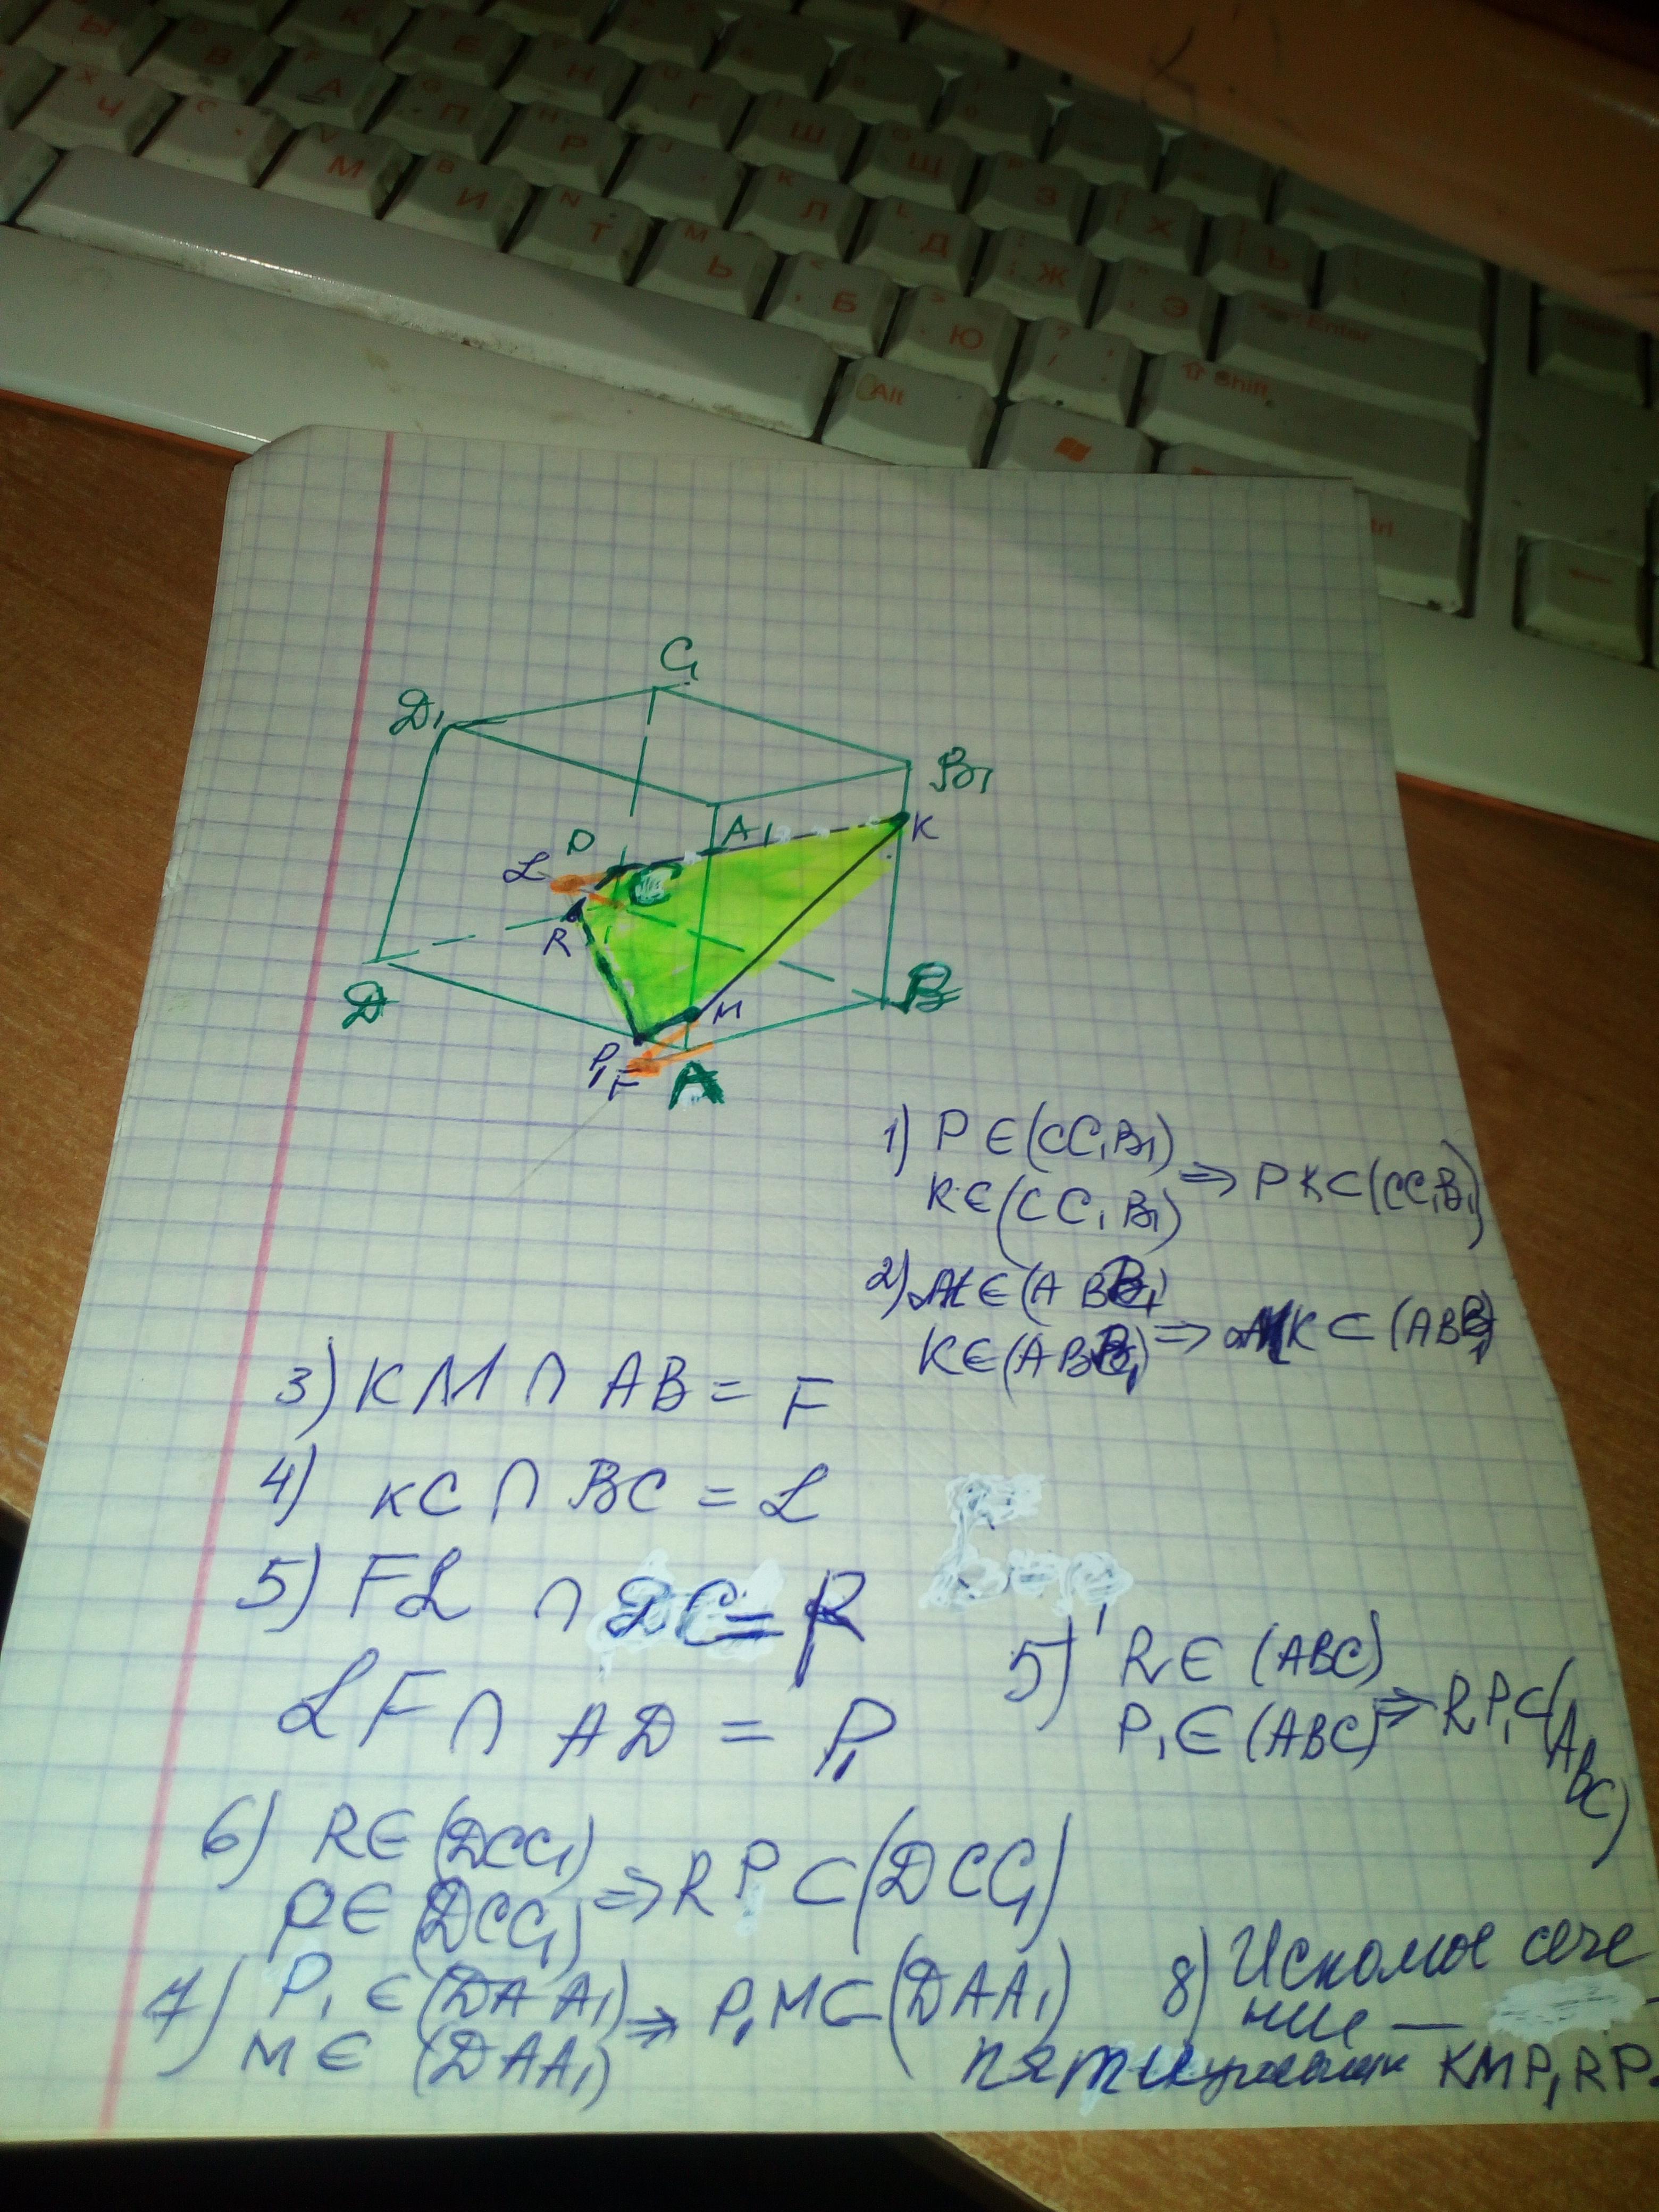 Ы В К Е Н Г Ш Щ З Х Ъ
Ч С М И Т Ь Б Ю
А П Р Л Д Ж Э
Enter
Alt
Shift
trl
C₁
D₁
B₁
P
A₁
K
L
C
R
D
B
M
P₁
F
A
1) P ∈ (CC₁B₁)
K ∈ (CC₁B₁) ⇒ PK ⊂ (CC₁B₁)
2) M ∈ (ABB₁)
K ∈ (ABB₁) ⇒ MK ⊂ (ABB₁)
3) KM ∩ AB = F
4) KC ∩ BC = L
5) FL ∩ DC = R
LF ∩ AD = P₁
5)' R ∈ (ABC)
P₁ ∈ (ABC) ⇒ RP₁ ⊂ (ABC)
6) R ∈ (DCC₁)
P ∈ (DCC₁) ⇒ RP ⊂ (DCC₁)
7) P₁ ∈ (DAA₁)
M ∈ (DAA₁) ⇒ P₁M ⊂ (DAA₁)
8) Искомое сече
ние —
пятиугольник KMP₁RP.